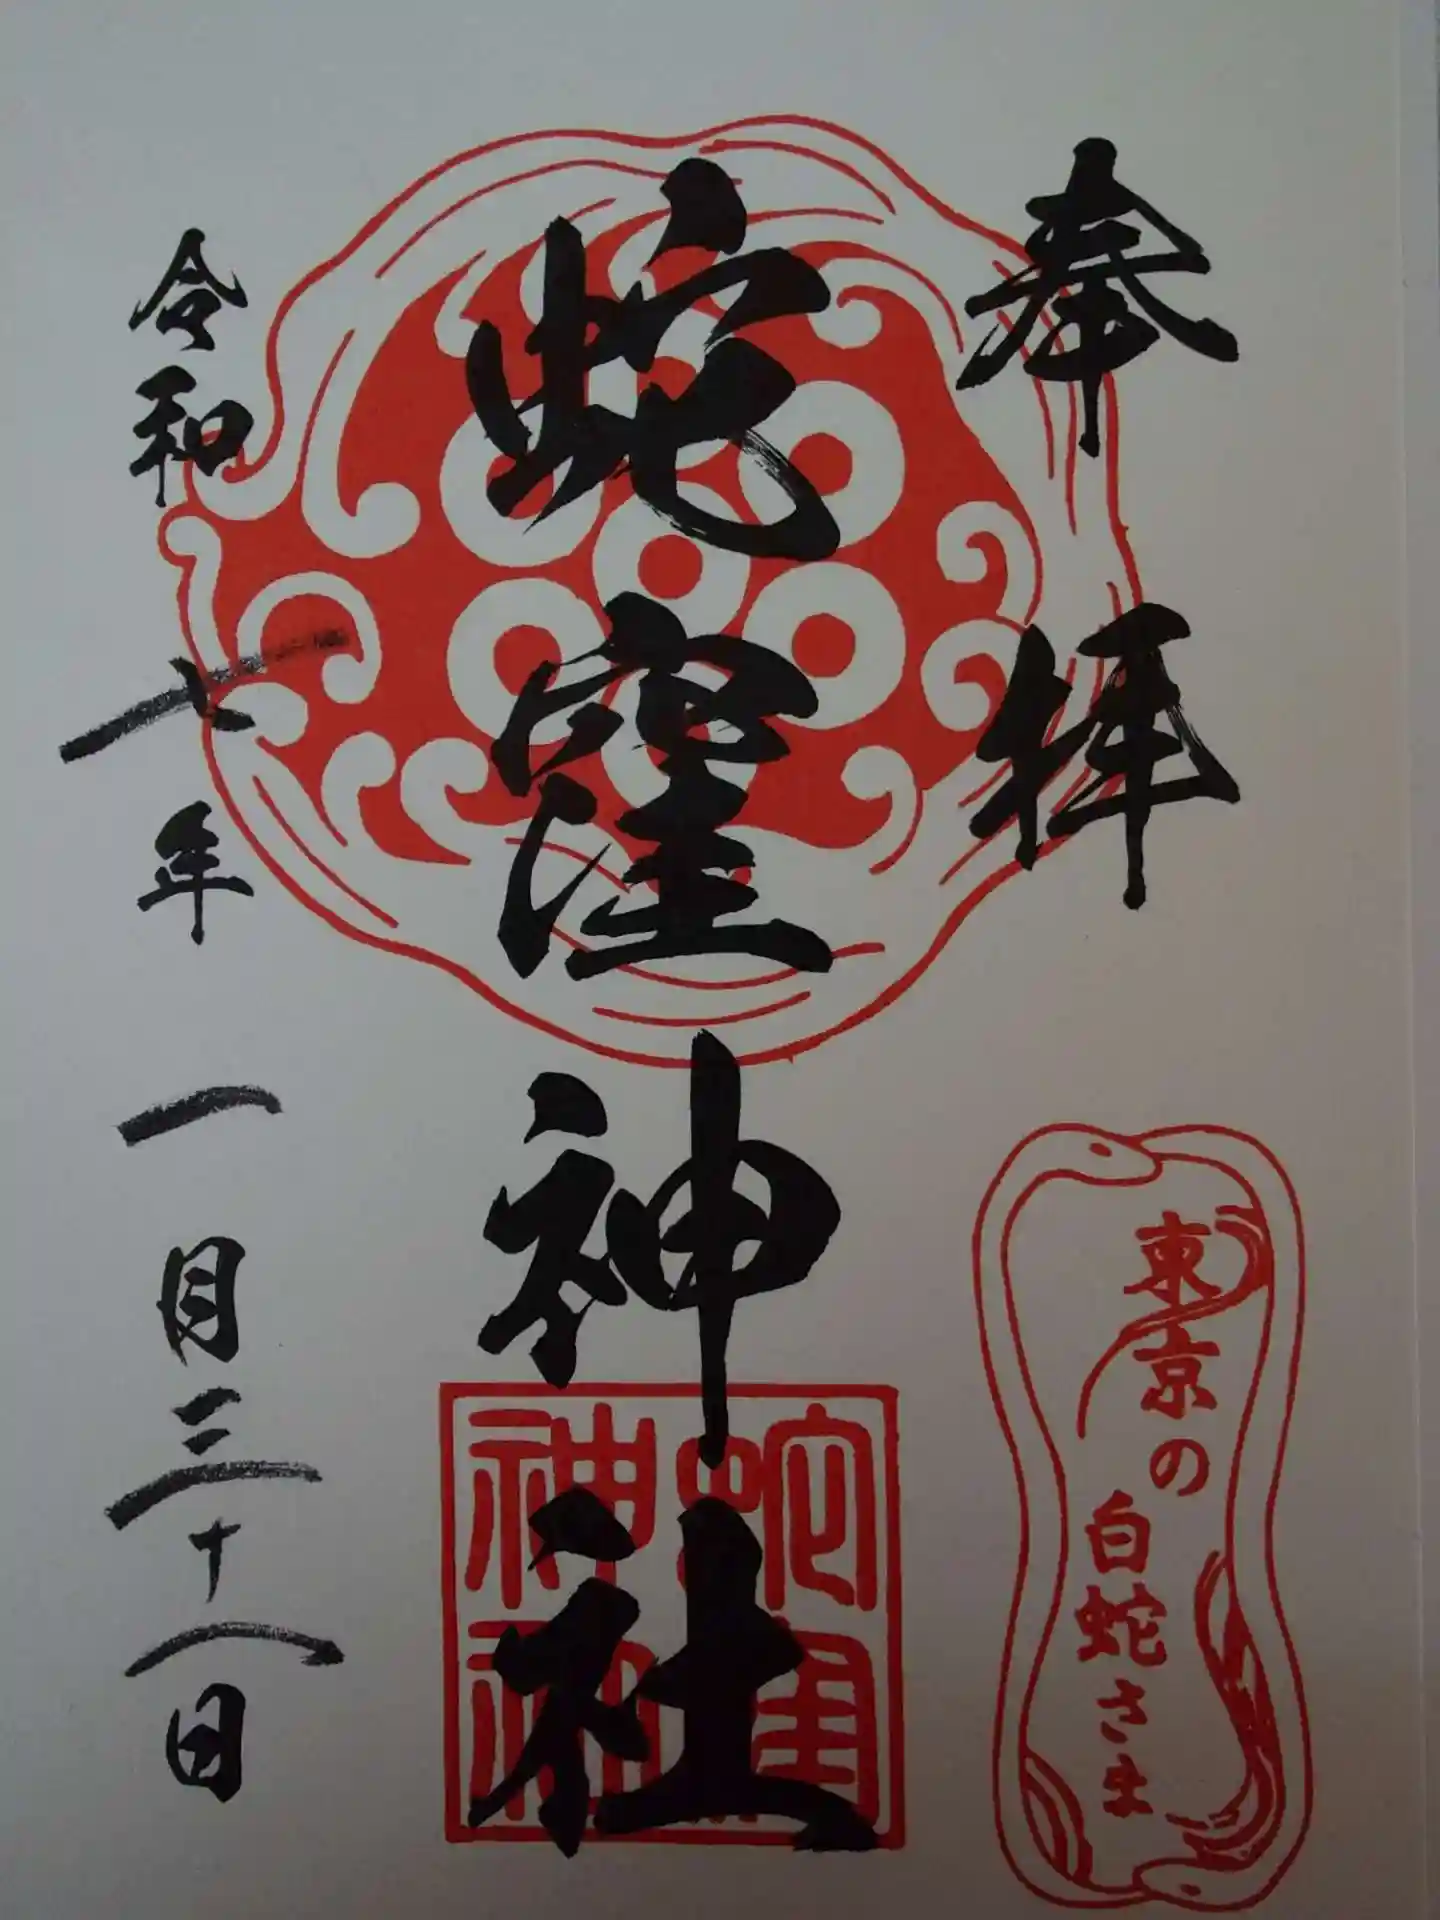 奉拝
東京の
白蛇さま
蛇窪神社
蛇窪
神社
令和七年一月三十一日